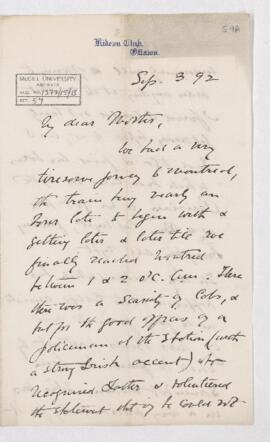 54A
Rideau Club,
Ottawa.
McGILL UNIVERSITY
ARCHIVES
ACC. NO. 1577/15/13
REF. 54
Sep. 3 92
My dear Mother,
We had a very
tiresome journey to Montreal,
the train being nearly an
hour late to begin with &
getting later & later till we
finally reached Montreal
between 1 & 2 o'C. a.m. There
there was a scarcity of Cabs, &
but for the good offices of a
policeman at the Station (with
a strong Irish accent) who
recognized & volunteered
the statement that if he could not